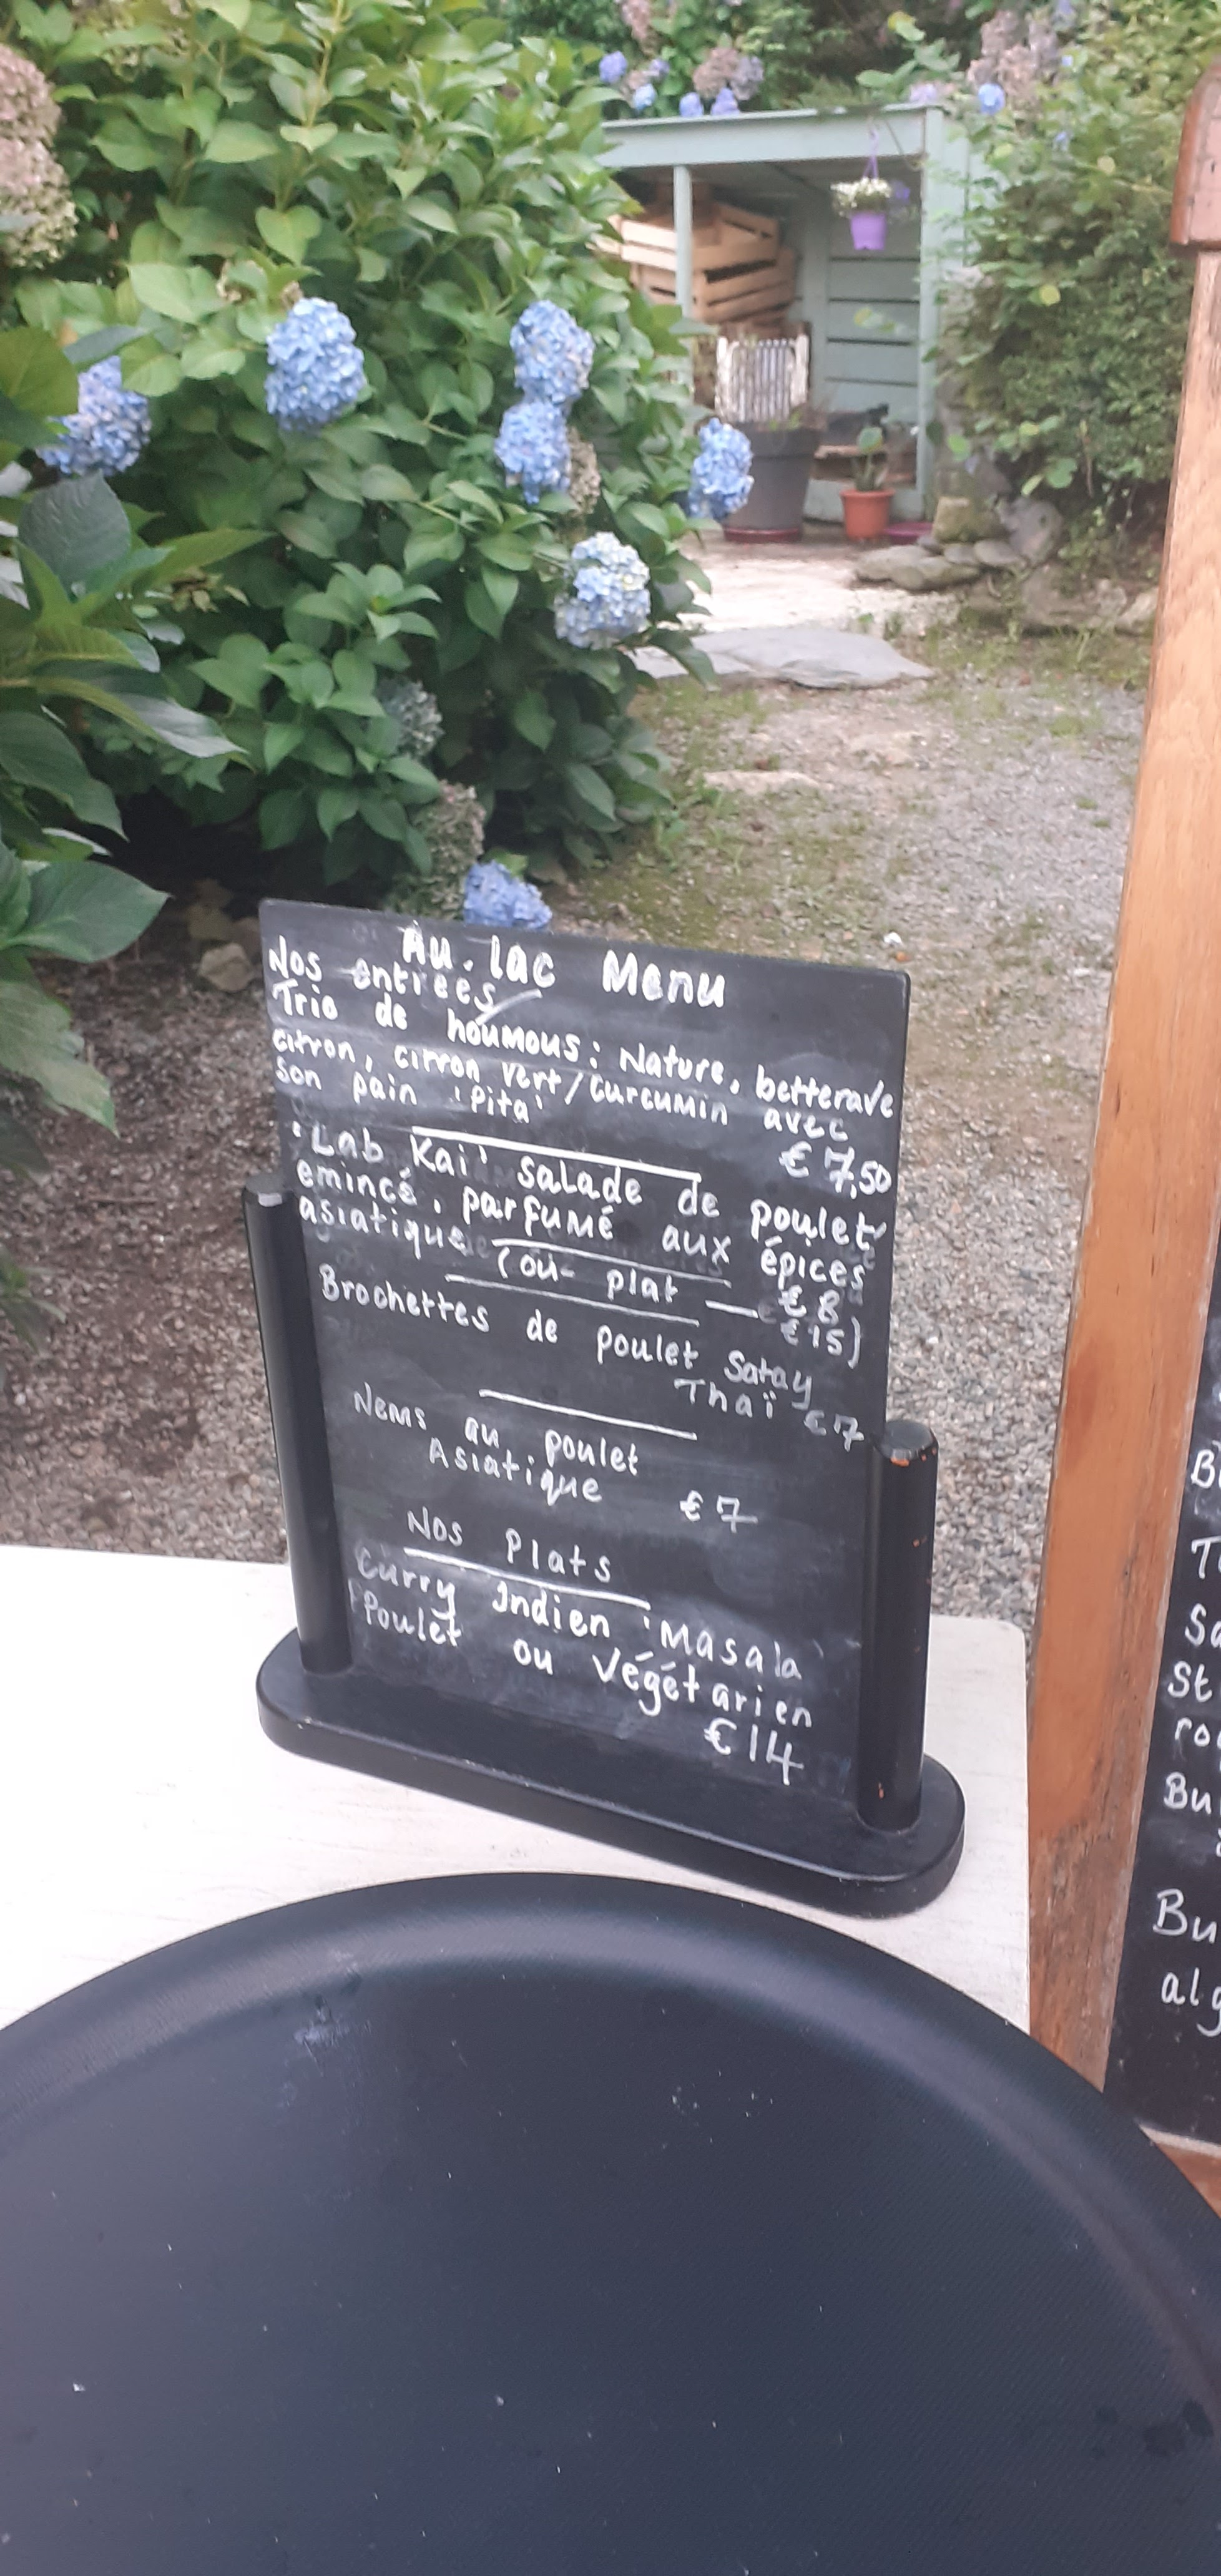 Au.lac Menu
Nos entrées
Trio de houmous: Nature, betterave
citron, citron vert/Curcumin avec
son pain 'Pita'
€7,50
'Lab Kai' salade de poulet
emincé, parfumé aux épices
asiatique €8
(ou plat — €15)
Brochettes de poulet Satay
Thaï €7
Nems au poulet
Asiatique €7
Nos Plats
Curry Indien 'Masala'
Poulet ou Végétarien
€14
St
Bu
Bu